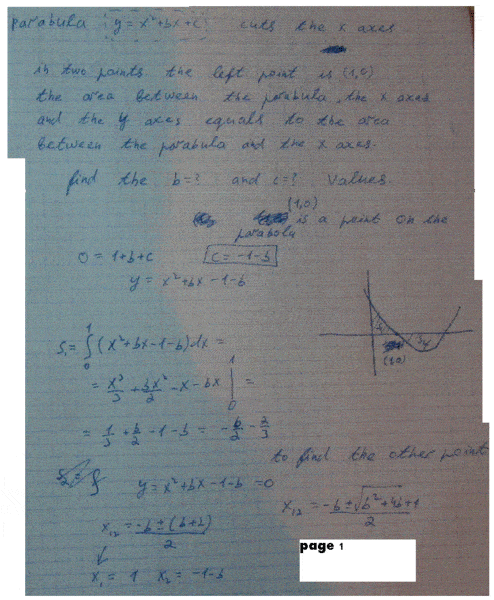 parabula y = x² + bx + c cuts the x axes
in two points the left point is (1,0)
the area between the parabula, the x axes
and the y axes equals to the area
between the parabula and the x axes.
find the b=? and c=? values.
(1,0) is a point on the
parabula
0 = 1+b+c c = -1-b
y = x² + bx - 1 - b
S₁ = ∫₀¹ (x² + bx - 1 - b) dx =
= x³/3 + bx²/2 - x - bx |₀¹ =
= 1/3 + b/2 - 1 - b = -b/2 - 2/3
S₁ S₂
(1,0)
to find the other point
S₂ = ∫ y = x² + bx - 1 - b = 0
x₁,₂ = (-b ± √(b² + 4b + 1))/2
x₁,₂ = (-b ± (b+2))/2
x₁ = 1 x₂ = -1-b
page 1